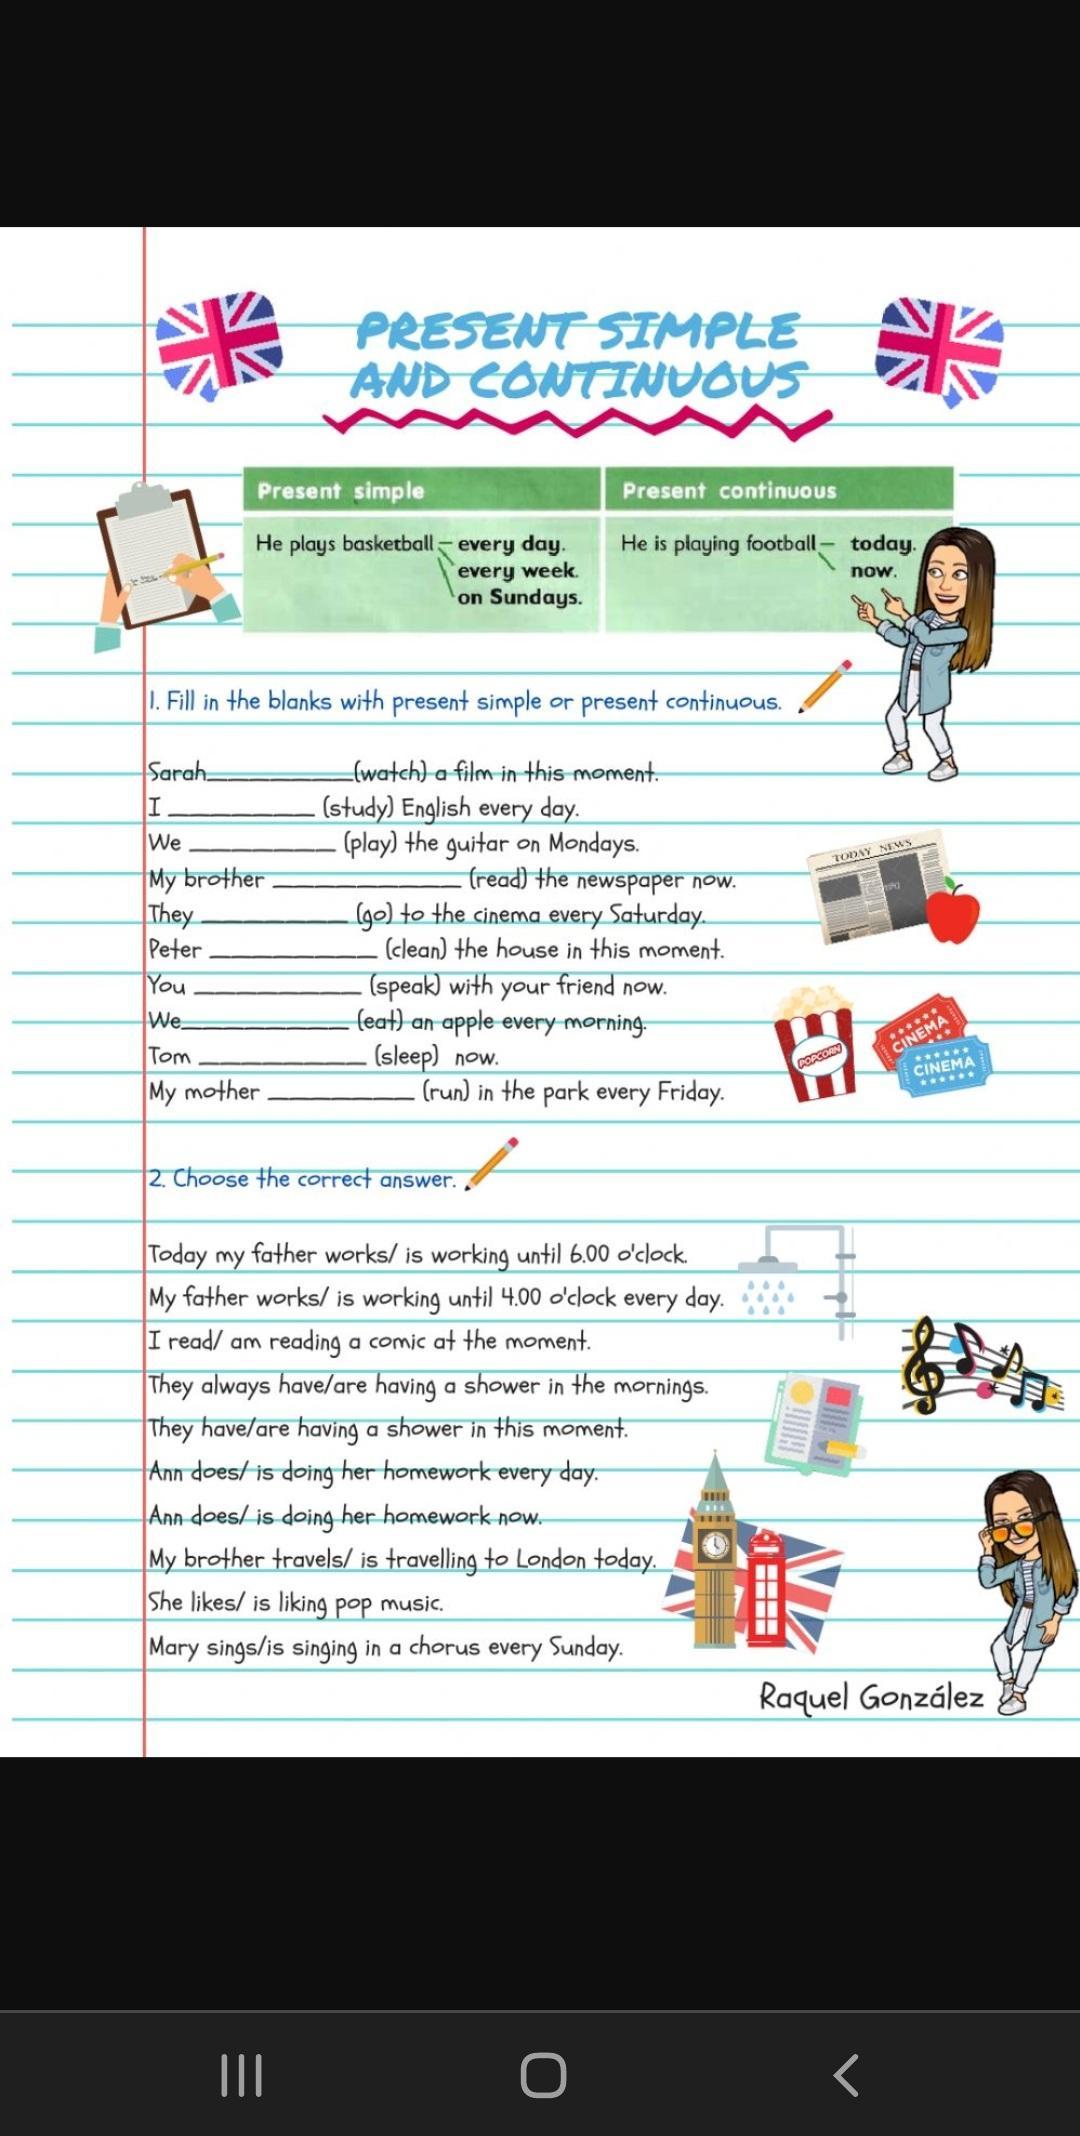 PRESENT SIMPLE
AND CONTINUOUS
Present simple
Present continuous
He plays basketball — every day.
every week.
on Sundays.
He is playing football — today.
now.
1. Fill in the blanks with present simple or present continuous.
Sarah_______(watch) a film in this moment.
I _______ (study) English every day.
We _______ (play) the guitar on Mondays.
My brother _________ (read) the newspaper now.
They _______ (go) to the cinema every Saturday.
Peter ________ (clean) the house in this moment.
You ________ (speak) with your friend now.
We________ (eat) an apple every morning.
Tom ________ (sleep) now.
My mother _______ (run) in the park every Friday.
TODAY NEWS
POPCORN
CINEMA
CINEMA
2. Choose the correct answer.
Today my father works/ is working until 6.00 o'clock.
My father works/ is working until 4.00 o'clock every day.
I read/ am reading a comic at the moment.
They always have/are having a shower in the mornings.
They have/are having a shower in this moment.
Ann does/ is doing her homework every day.
Ann does/ is doing her homework now.
My brother travels/ is travelling to London today.
She likes/ is liking pop music.
Mary sings/is singing in a chorus every Sunday.
Raquel González